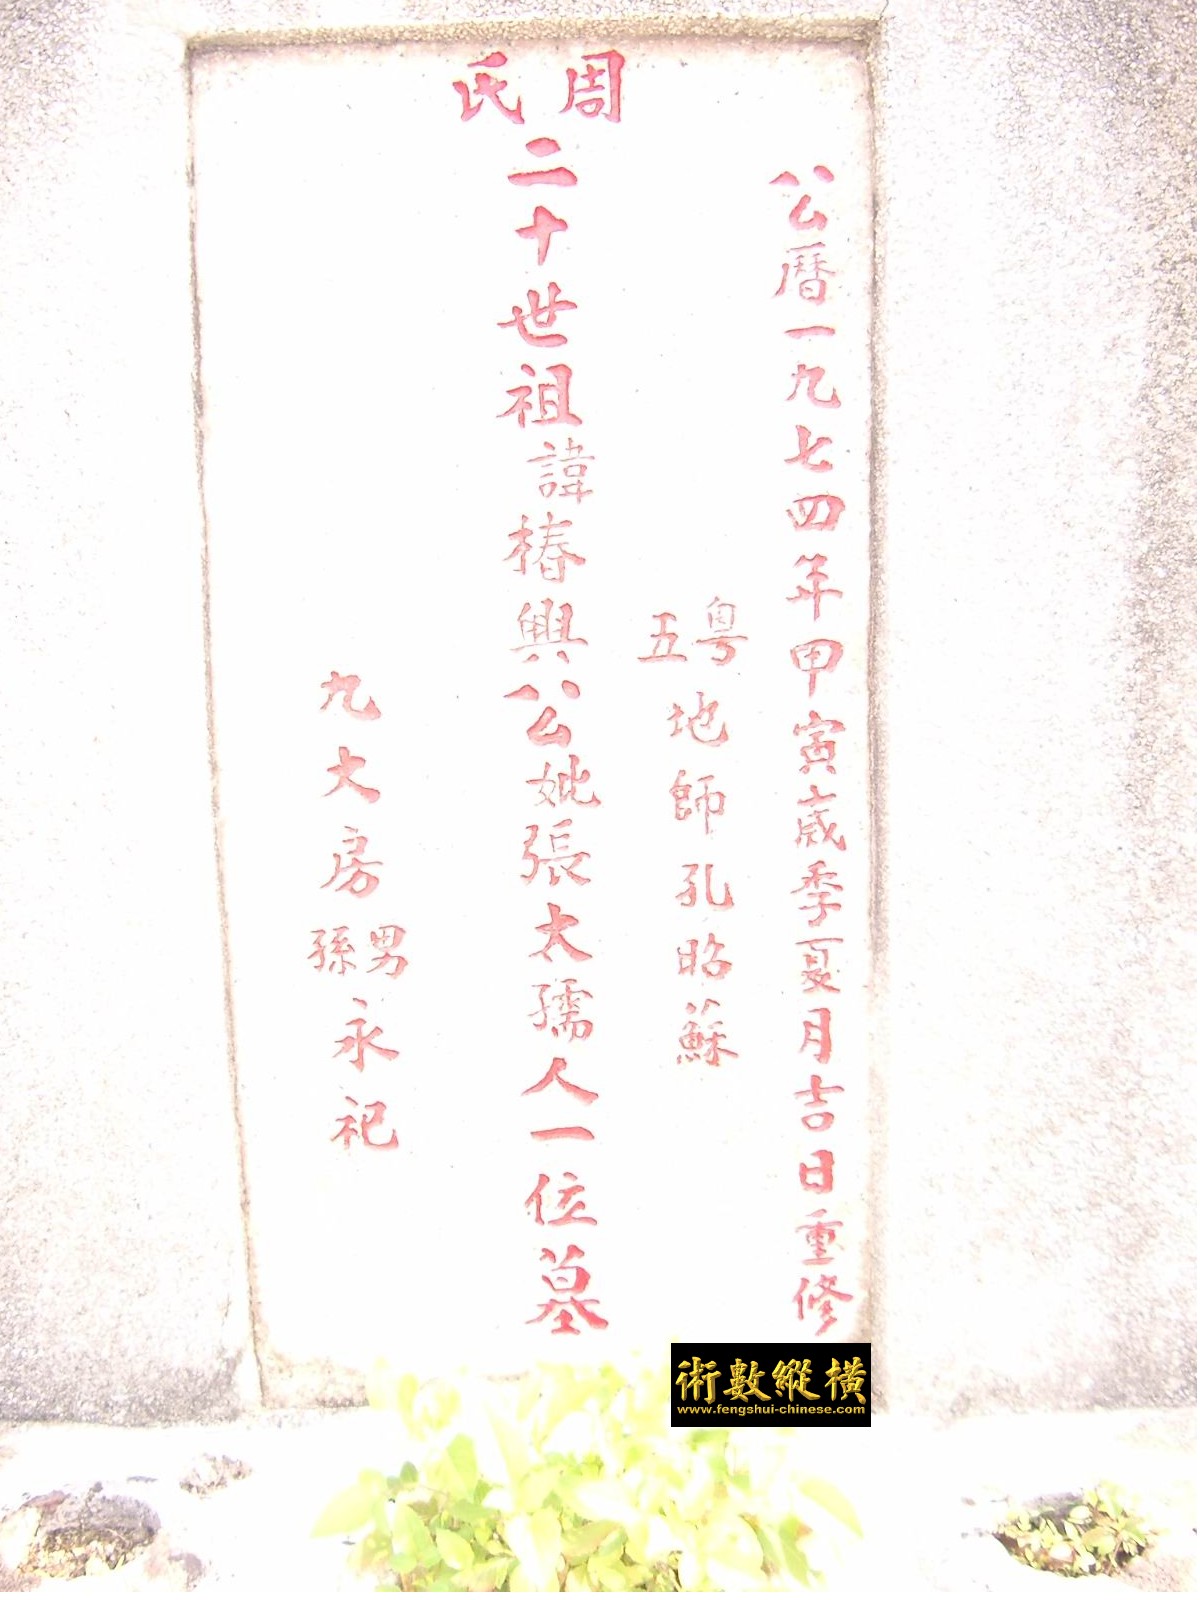 周氏
公曆一九七四年甲寅歲季夏月吉日重修
粵五地師孔昭蘇
二十世祖諱椿興公妣張太孺人一位墓
九大房男孫永祀
術數縱橫
www.fengshui-chinese.com